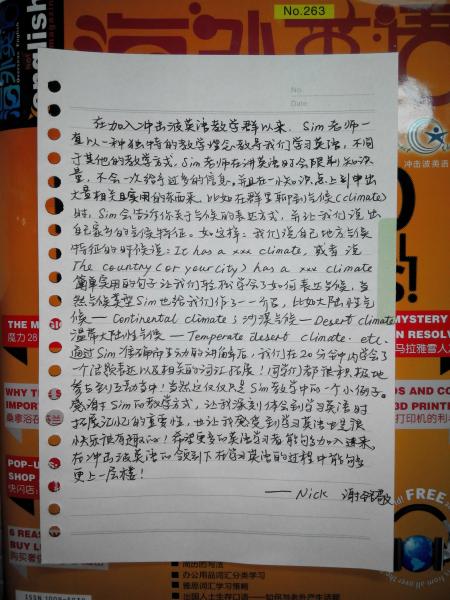 No.263
海外英语
english
No
Date
在加入冲击波英语教学群以来，Sim老师一
直以一种独特的教学理念教导我们学习英语，不同
于其他的教学方式，Sim老师在讲英语时会限制知识
量，不会一次给予过多的信息。并且在一小知识点上引申出
大量相关且实用的东西来，比如在群里聊到气候(climate)
时，Sim会告诉你关于气候的表达方式，并让我们说出
自己家乡的气候特征。如这样：我们说自己地方气候
特征的时候说：It has a xxx climate, 或者说
The country (or your city) has a xxx climate
简单实用的句子让我们轻松学会了如何表达气候，当
然气候类型Sim也给我们作了一个介绍，比如大陆性气
候 — Continental climate；沙漠气候 — Desert climate
温带大陆性气候 — Temperate desert climate. etc.
通过Sim 生动的讲解后，我们在20分钟内学会了
一个话题表达以及相关的词汇拓展！同学们都很积极地
参与到互动当中！当然这仅仅只是Sim教学中的一个小例子。
感谢Sim的教学方式，让我深刻体会到学习英语时
拓展记忆的重要性，也让我感受到学习英语也是很
快乐很有趣的！希望更多的英语学习者能够加入进来，
在冲击波英语的领引下在学习英语的过程中能够
更上一层楼！
— Nick 谢
冲击波英语
THE M
魔力28
WHY T
IMPORT
桑拿浴在
POP-U
SHOP
快闪店：
6 REAS
BUY L
购买奢
MYSTERY
N RESOLV
马拉雅雪人
OS AND CO
3D PRINT
打印机的利
FREE
简历的写法
办公用品词汇分类学习
雅思词汇学习策略
出国人士生存口语——如何与老外产生话题
ISSN 1009-5039